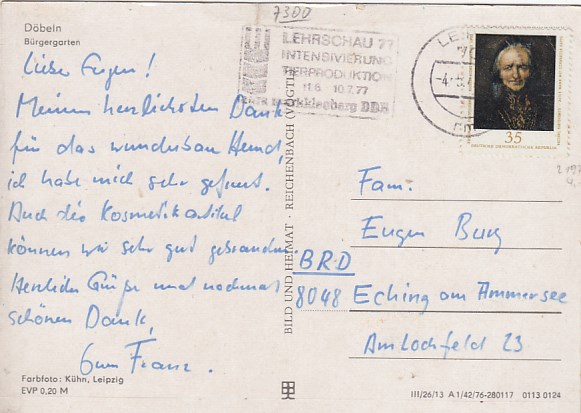 7300
Döbeln
Bürgergarten
Lieber Eugen!
Meinen herzlichsten Dank
für das wunderbare Hemd,
ich habe mich sehr gefreut.
Auch die Kosmetikartikel
können wir sehr gut gebrauchen.
Herzliche Grüße und nochmals
schönen Dank,
Euer Franz.
Farbfoto: Kühn, Leipzig
EVP 0,20 M
BILD UND HEIMAT · REICHENBACH (VOGTL)
LEHRSCHAU 77
INTENSIVIERUNG
TIERPRODUKTION
11.6. 10.7.77
Markkleeberg DDR
35
DEUTSCHE DEMOKRATISCHE REPUBLIK
Fam.
Eugen Burg
BRD
8048 Eching am Ammersee
Am Lochfeld 23
III/26/13 A 1/42/76-280117 0113 0124